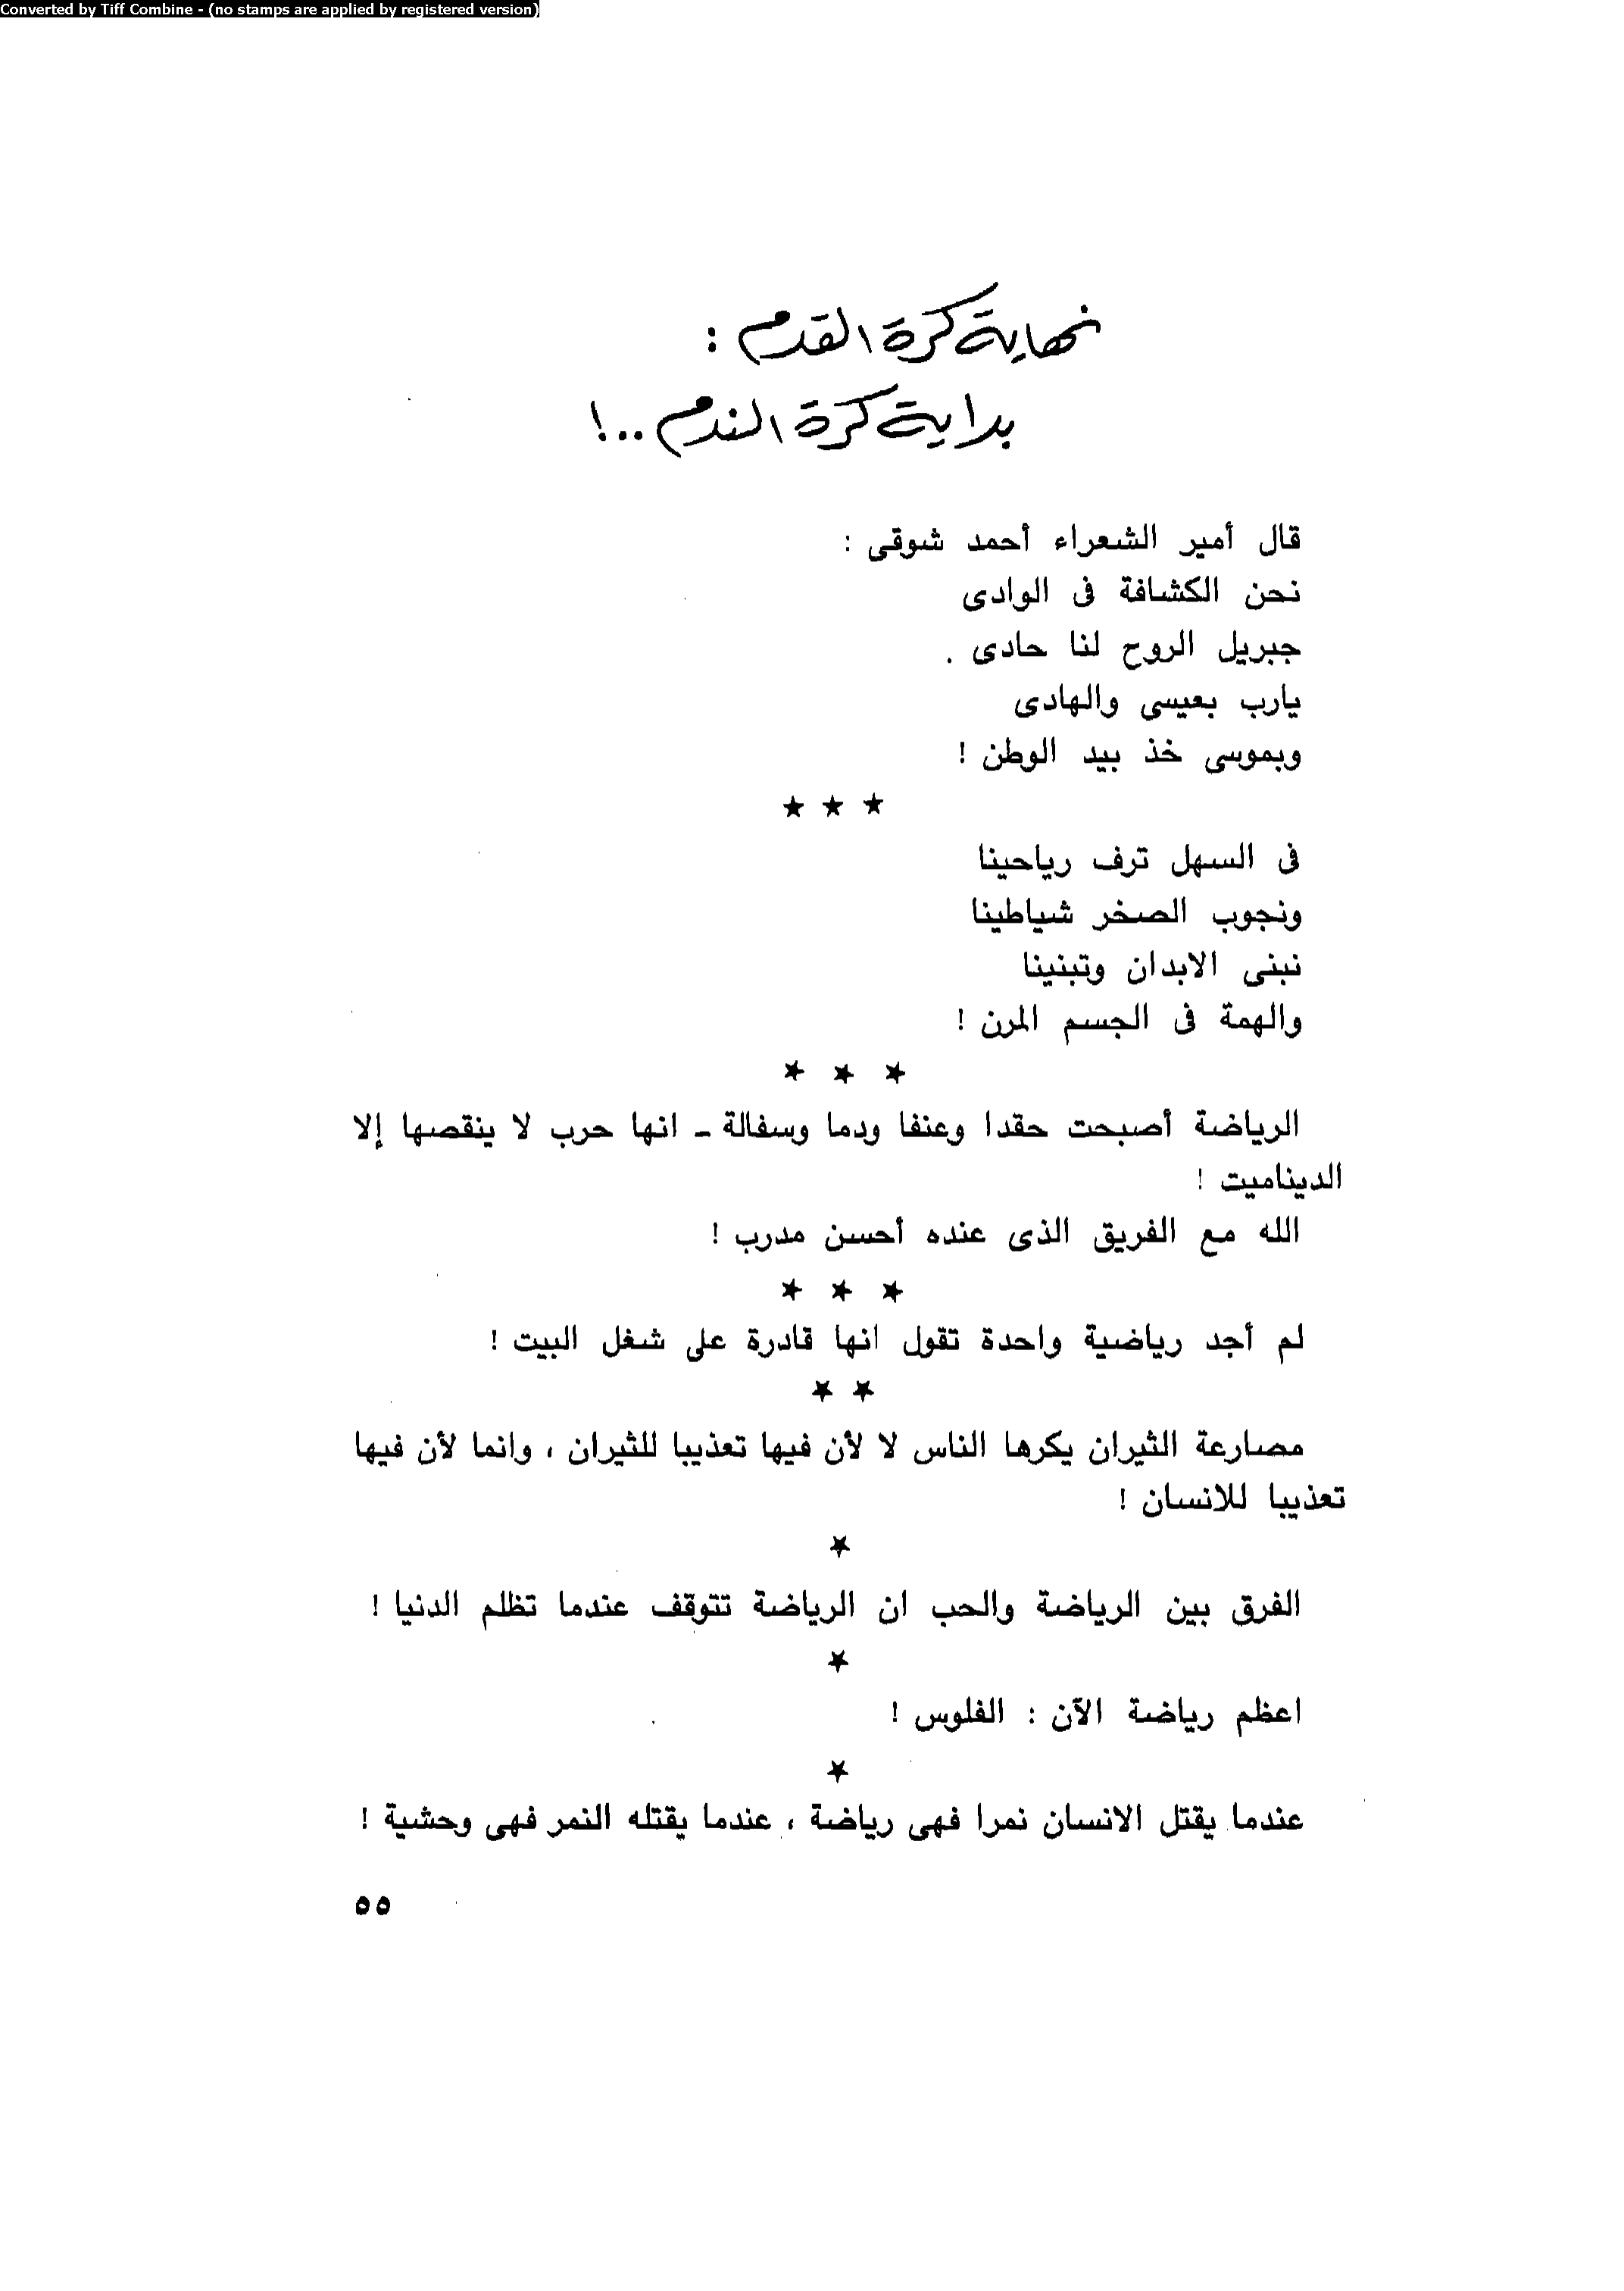 Converted by Tiff Combine - (no stamps are applied by registered version)
نهاية كرة القدم :
بداية كرة الندم ..!
قال أمير الشعراء أحمد شوقى :
نحن الكشافة فى الوادى
جبريل الروح لنا حادى .
يارب بعيسى والهادى
وبموسى خذ بيد الوطن !
★ ★ ★
فى السهل ترف رياحينا
ونجوب الصخر شياطينا
نبنى الابدان وتبنينا
والهمة فى الجسم المرن !
★ ★ ★
الرياضة أصبحت حقدا وعنفا ودما وسفالة ـ انها حرب لا ينقصها إلا
الديناميت !
الله مع الفريق الذى عنده أحسن مدرب !
★ ★ ★
لم أجد رياضية واحدة تقول انها قادرة على شغل البيت !
★ ★
مصارعة الثيران يكرها الناس لا لأن فيها تعذيبا للثيران ، وانما لأن فيها
تعذيبا للانسان !
★
الفرق بين الرياضة والحب ان الرياضة تتوقف عندما تظلم الدنيا !
★
اعظم رياضة الآن : الفلوس !
★
عندما يقتل الانسان نمرا فهى رياضة ، عندما يقتله النمر فهى وحشية !
٥٥